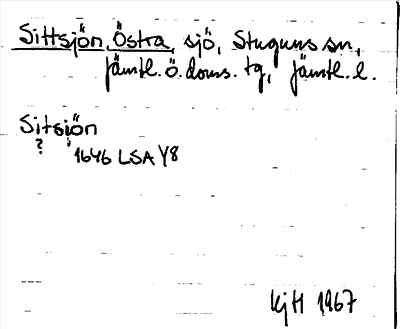 Sittsjön, Östra, sjö, Stuguns sn,
Jämtl. ö. doms. tg, Jämtl. l.
Sitsjön
? 1646 LSA Y8
KjH 1967